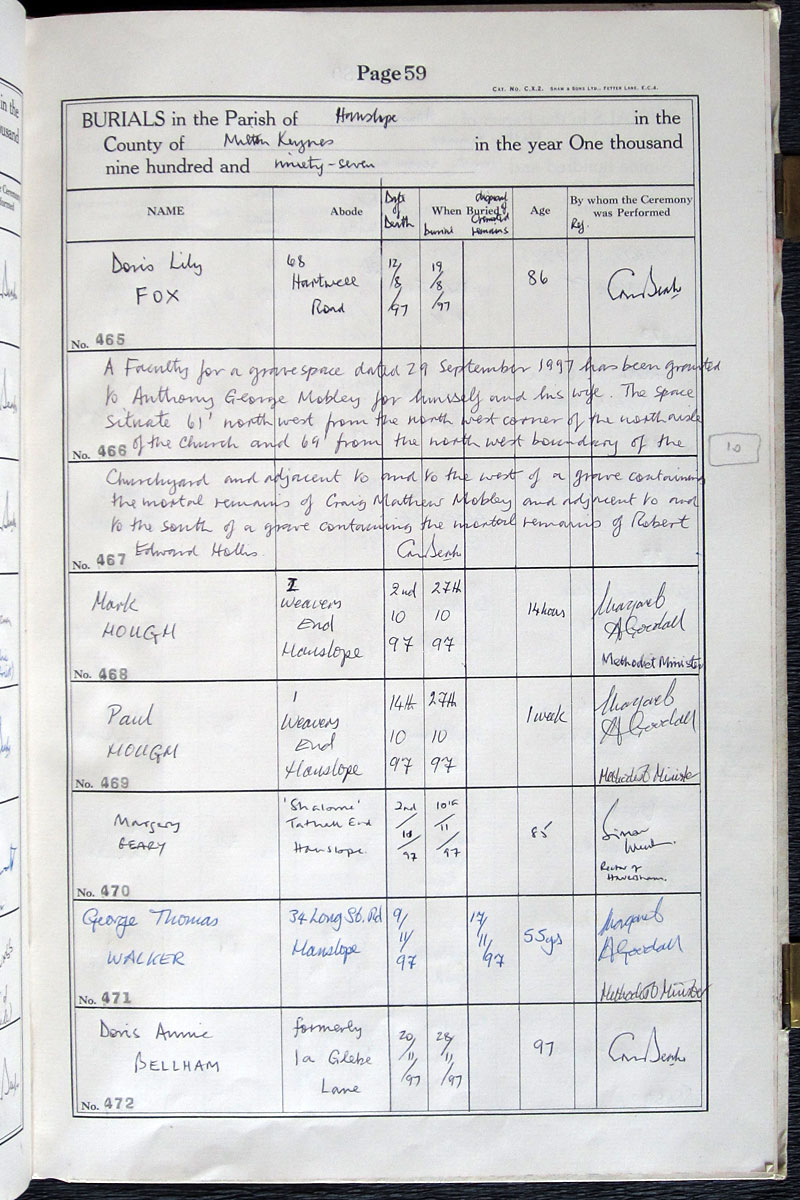 Page 59
CAT. NO. C.X.2. SHAW & SONS LTD., FETTER LANE, E.C.4.
BURIALS in the Parish of Hanslope in the
County of Milton Keynes in the year One thousand
nine hundred and ninety-seven
NAME Abode Date of Death When Buried Age By whom the Ceremony was Performed
burial Cremated remains
Doris Lily FOX
68 Hartwell Road
12/8/97
19/8/97
86
No. 465
A Faculty for a gravespace dated 29 September 1997 has been granted
to Anthony George Mobley for himself and his wife. The space
situate 61' north west from the north west corner of the north aisle
of the Church and 69' from the north west boundary of the
No. 466
10
Churchyard and adjacent to and to the west of a grave containing
the mortal remains of Craig Mathew Mobley and adjacent to and
to the south of a grave containing the mortal remains of Robert
Edward Hollis.
No. 467
Mark HOUGH
1 Weavers End Hanslope
2nd 10 97
27th 10 97
14 hours
Margaret A Goodall
Methodist Minister
No. 468
Paul HOUGH
1 Weavers End Hanslope
14th 10 97
27th 10 97
1 week
Margaret A Goodall
Methodist Minister
No. 469
Margery GEARY
'Shalome' Tathall End Hanslope.
2nd/11/97
10th/11/97
85
Simon
Rector of Haversham.
No. 470
George Thomas WALKER
34 Long St. Rd Hanslope
9/11/97
17/11/97
55yrs
Margaret A Goodall
Methodist Minister
No. 471
Doris Annie BELLHAM
formerly 1a Glebe Lane
20/11/97
28/11/97
97
No. 472